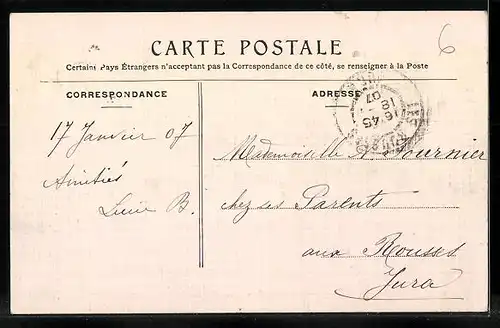 6
CARTE POSTALE
Certains Pays Étrangers n'acceptent pas la Correspondance de ce côté, se renseigner à la Poste
CORRESPONDANCE
ADRESSE
16 45
18
07
17 Janvier 07
Amitiés
Lucie B.
Mademoiselle Fournier
chez ses Parents
aux Rousses
Jura